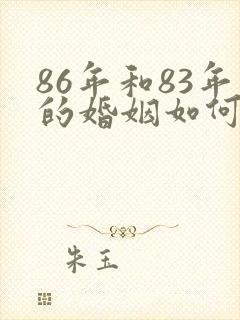 86年和83年
的婚姻如何
朱玉